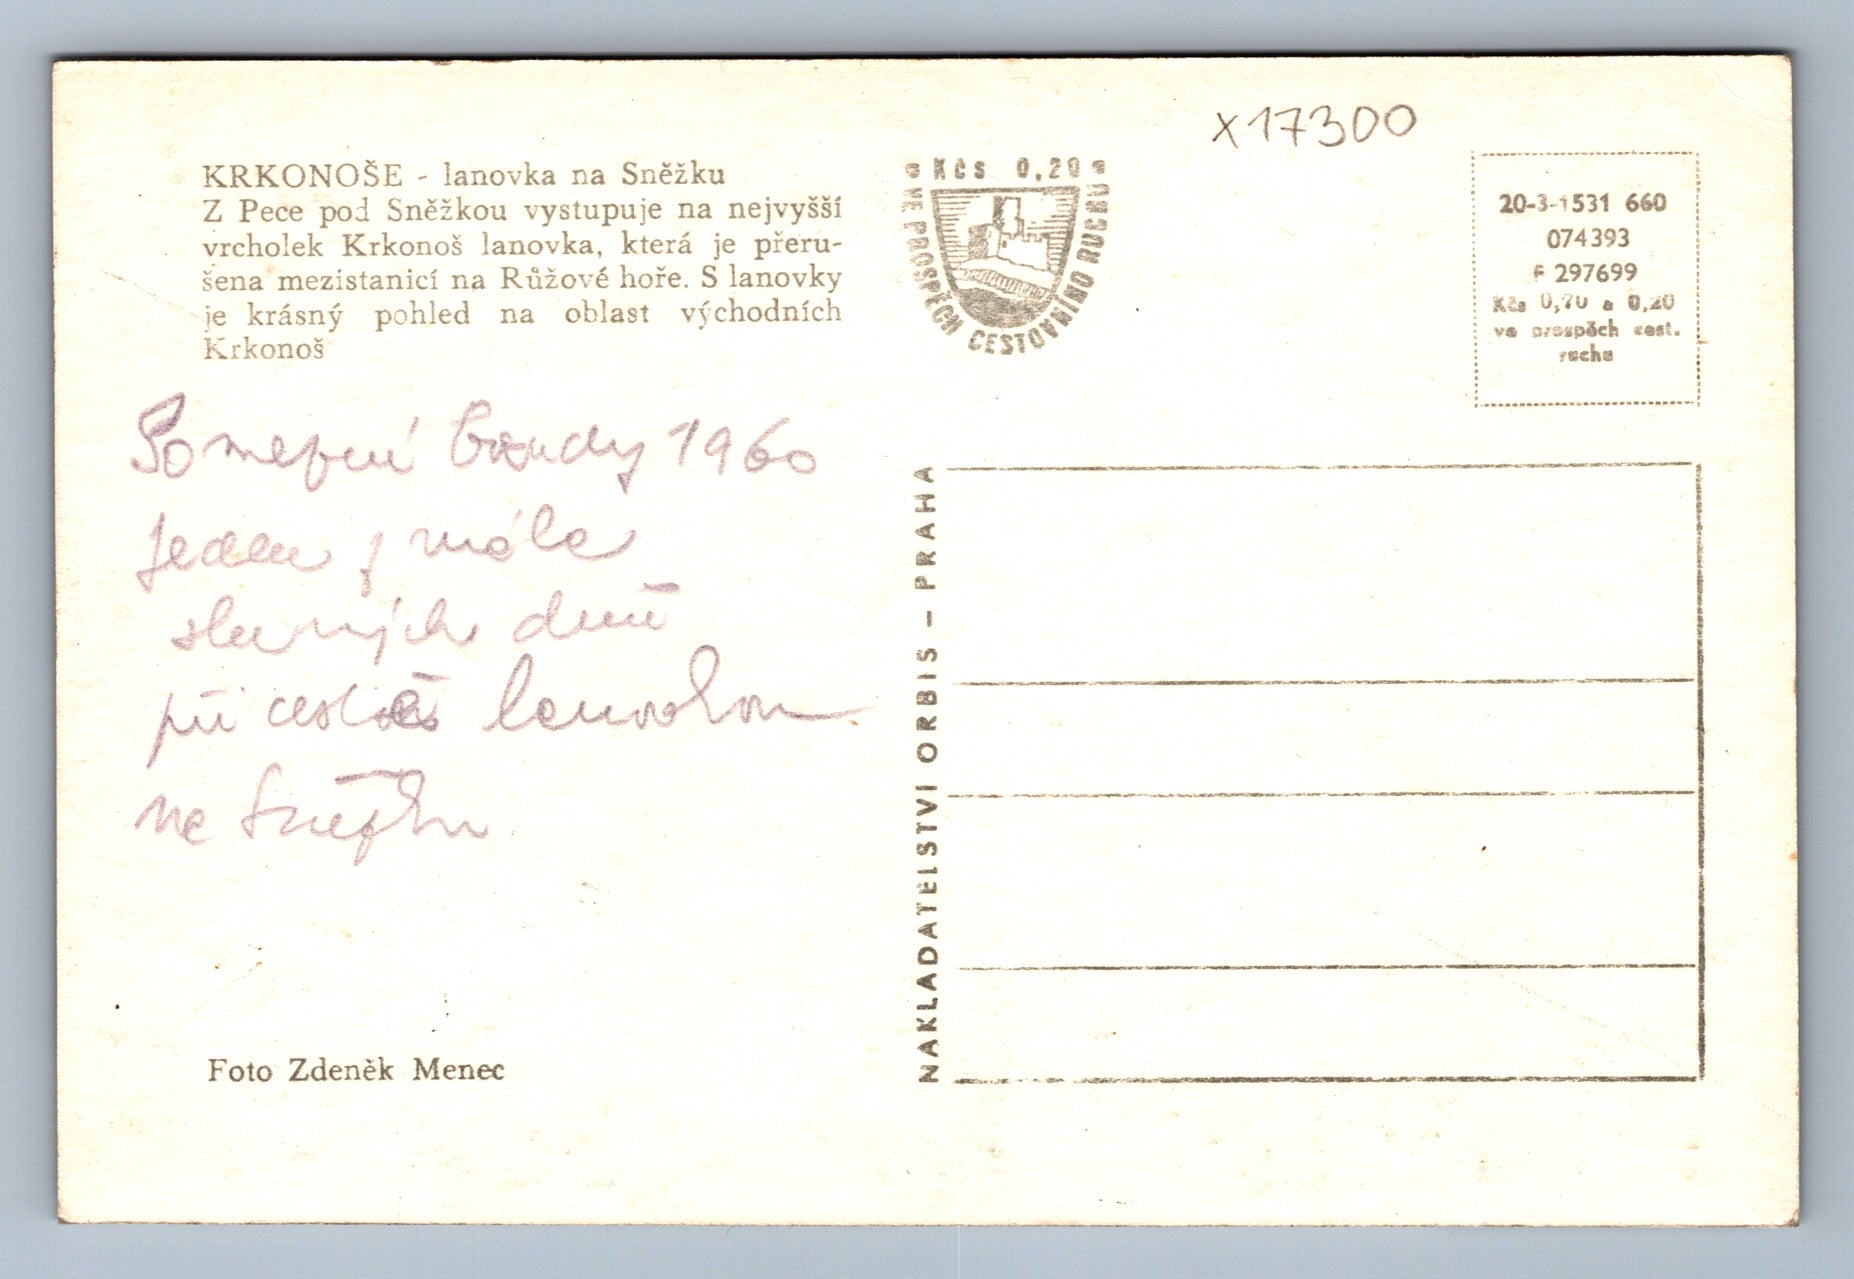 x17300
KRKONOŠE - lanovka na Sněžku
Z Pece pod Sněžkou vystupuje na nejvyšší
vrcholek Krkonoš lanovka, která je přeru-
šena mezistanicí na Růžové hoře. S lanovky
je krásný pohled na oblast východních
Krkonoš
Kčs 0,20
VE PROSPĚCH CESTOVNÍHO RUCHU
20-3-1531 660
074393
F 297699
Kčs 0,70 a 0,20
ve prospěch cest.
ruchu
Pomezní boudy 1960
jeden z mála
slunných dnů
při cestě lanovkou
na Sněžku
NAKLADATELSTVÍ ORBIS - PRAHA
Foto Zdeněk Menec